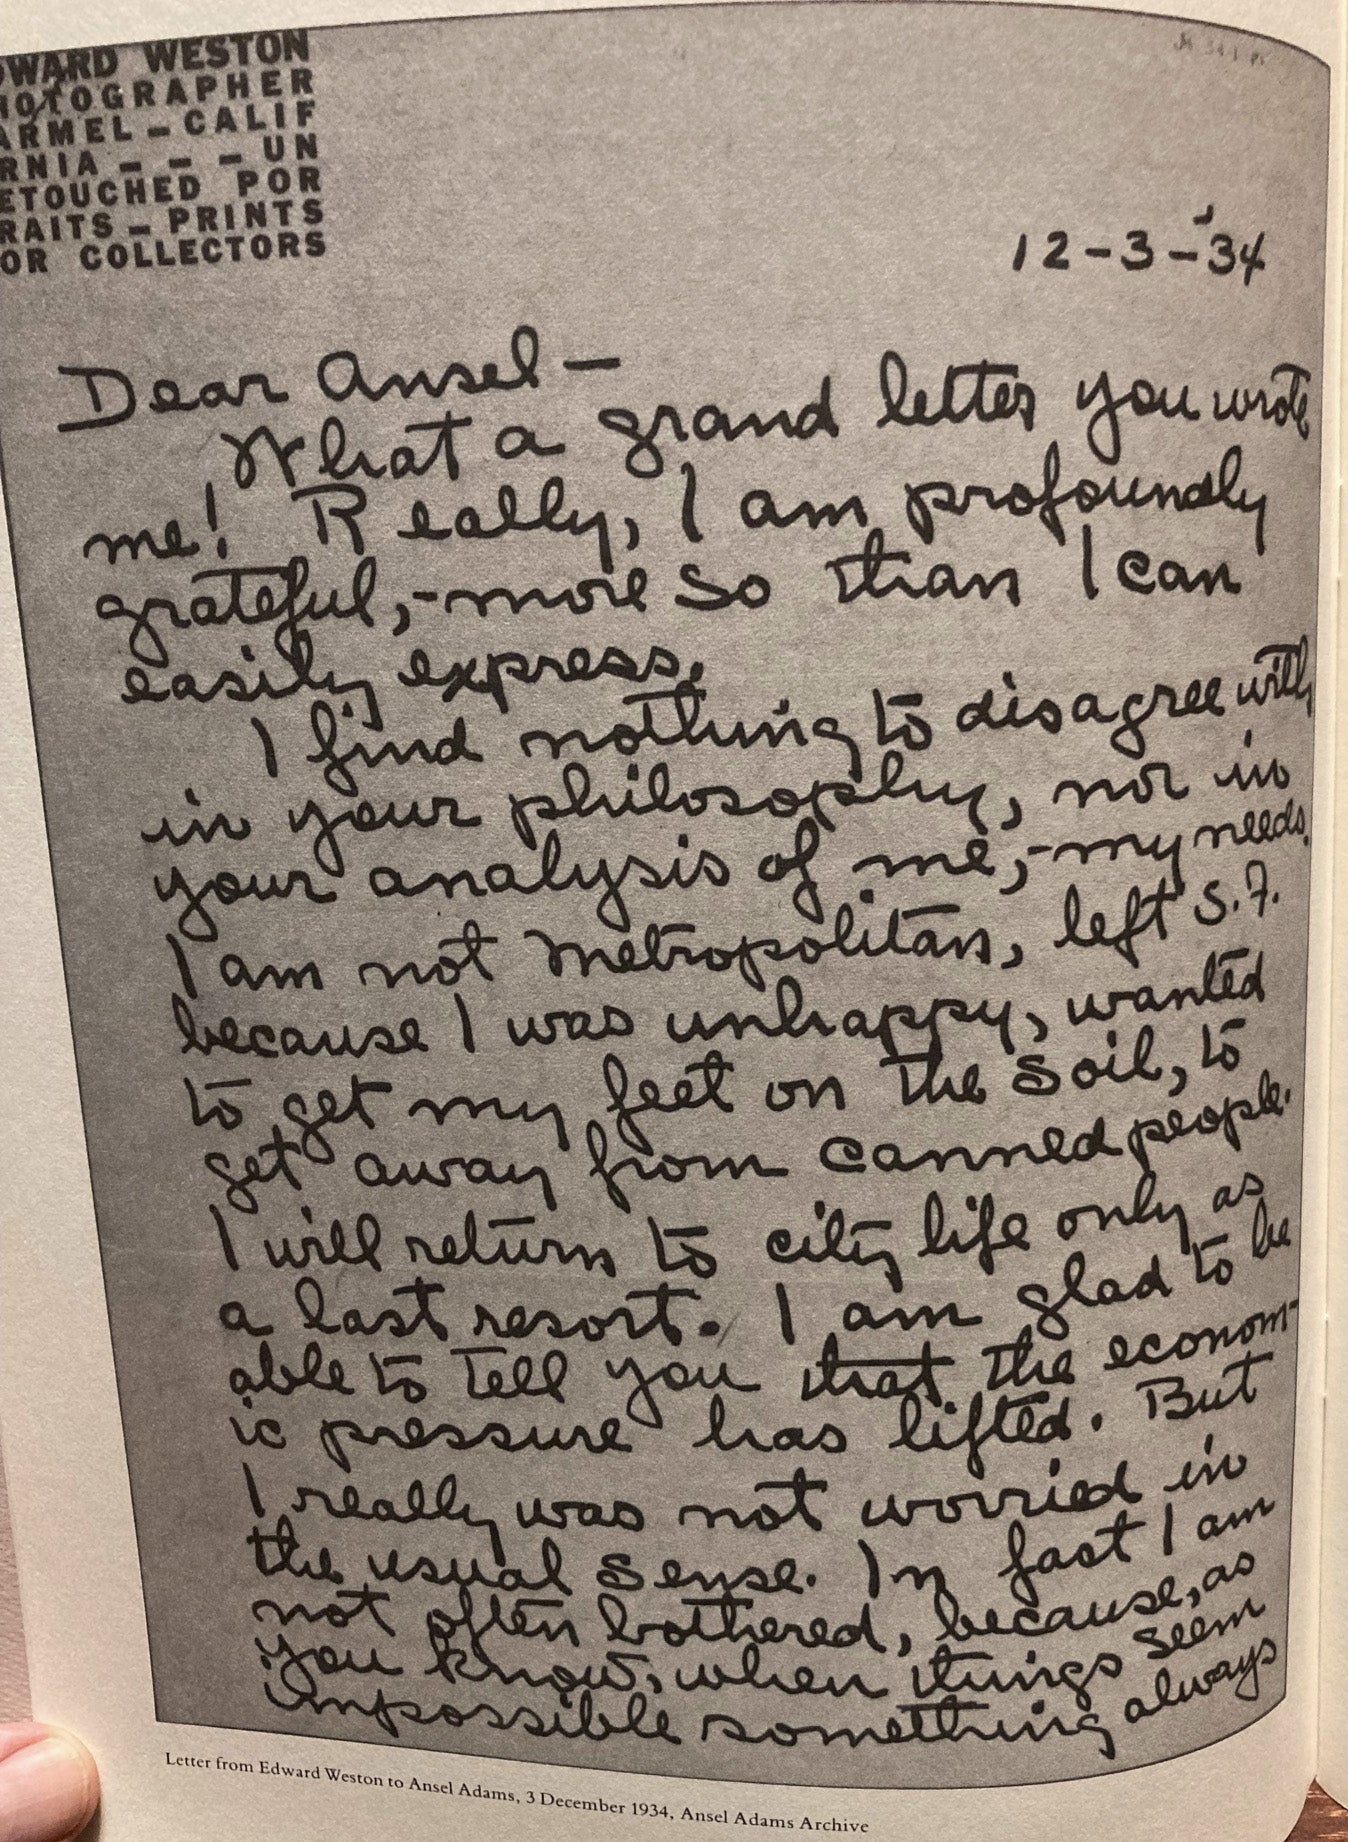 DWARD WESTON
HOTOGRAPHER
ARMEL – CALIF
RNIA – – – UN
ETOUCHED POR
RAITS – PRINTS
OR COLLECTORS
12-3-'34
Dear Ansel –
What a grand letter you wrote
me! Really, I am profoundly
grateful,- more so than I can
easily express.
I find nothing to disagree with
in your philosophy, nor in
your analysis of me,- my needs.
I am not metropolitan, left S.F.
because I was unhappy, wanted
to get my feet on the soil, to
get away from canned people.
I will return to city life only as
a last resort. I am glad to be
able to tell you that the econom-
ic pressure has lifted. But
I really was not worried in
the usual sense. In fact I am
not often bothered, because, as
you know, when things seem
impossible something always
Letter from Edward Weston to Ansel Adams, 3 December 1934, Ansel Adams Archive